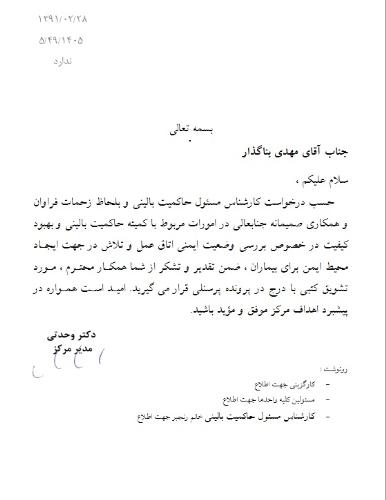 ۱۳۹۱/۰۲/۲۸
۵/۴۹/۱۴۰۵
ندارد
بسمه تعالی
جناب آقای مهدی بناگذار
سلام علیکم ،
حسب درخواست کارشناس مسئول حاکمیت بالینی و بلحاظ زحمات فراوان
و همکاری صمیمانه جنابعالی در امورات مربوط با کمیته حاکمیت بالینی و بهبود
کیفیت در خصوص بررسی وضعیت ایمنی اتاق عمل و تلاش در جهت ایجاد
محیط ایمن برای بیماران ، ضمن تقدیر و تشکر از شما همکار محترم ، مورد
تشویق کتبی با درج در پرونده پرسنلی قرار می گیرید. امید است همواره در
پیشبرد اهداف مرکز موفق و مؤید باشید.
دکتر وحدتی
مدیر مرکز
رونوشت :
- کارگزینی جهت اطلاع
- مسئولین کلیه واحدها جهت اطلاع
- کارشناس مسئول حاکمیت بالینی خانم رنجبر جهت اطلاع